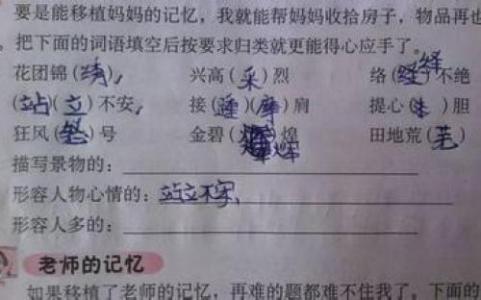 要是能移植妈妈的记忆，我就能帮妈妈收拾房子，物品再也
把下面的词语填空后按要求归类就更能得心应手了。
花团锦(绣) 兴高(采)烈 络(绎)不绝
(站)(立)不安 接(踵)(摩)肩 提心( )胆
狂风(怒)号 金碧(辉)煌 田地荒(芜)
描写景物的：
形容人物心情的：站立不安、
形容人多的：
老师的记忆
如果移植了老师的记忆，再难的题都难不住我了，下面的